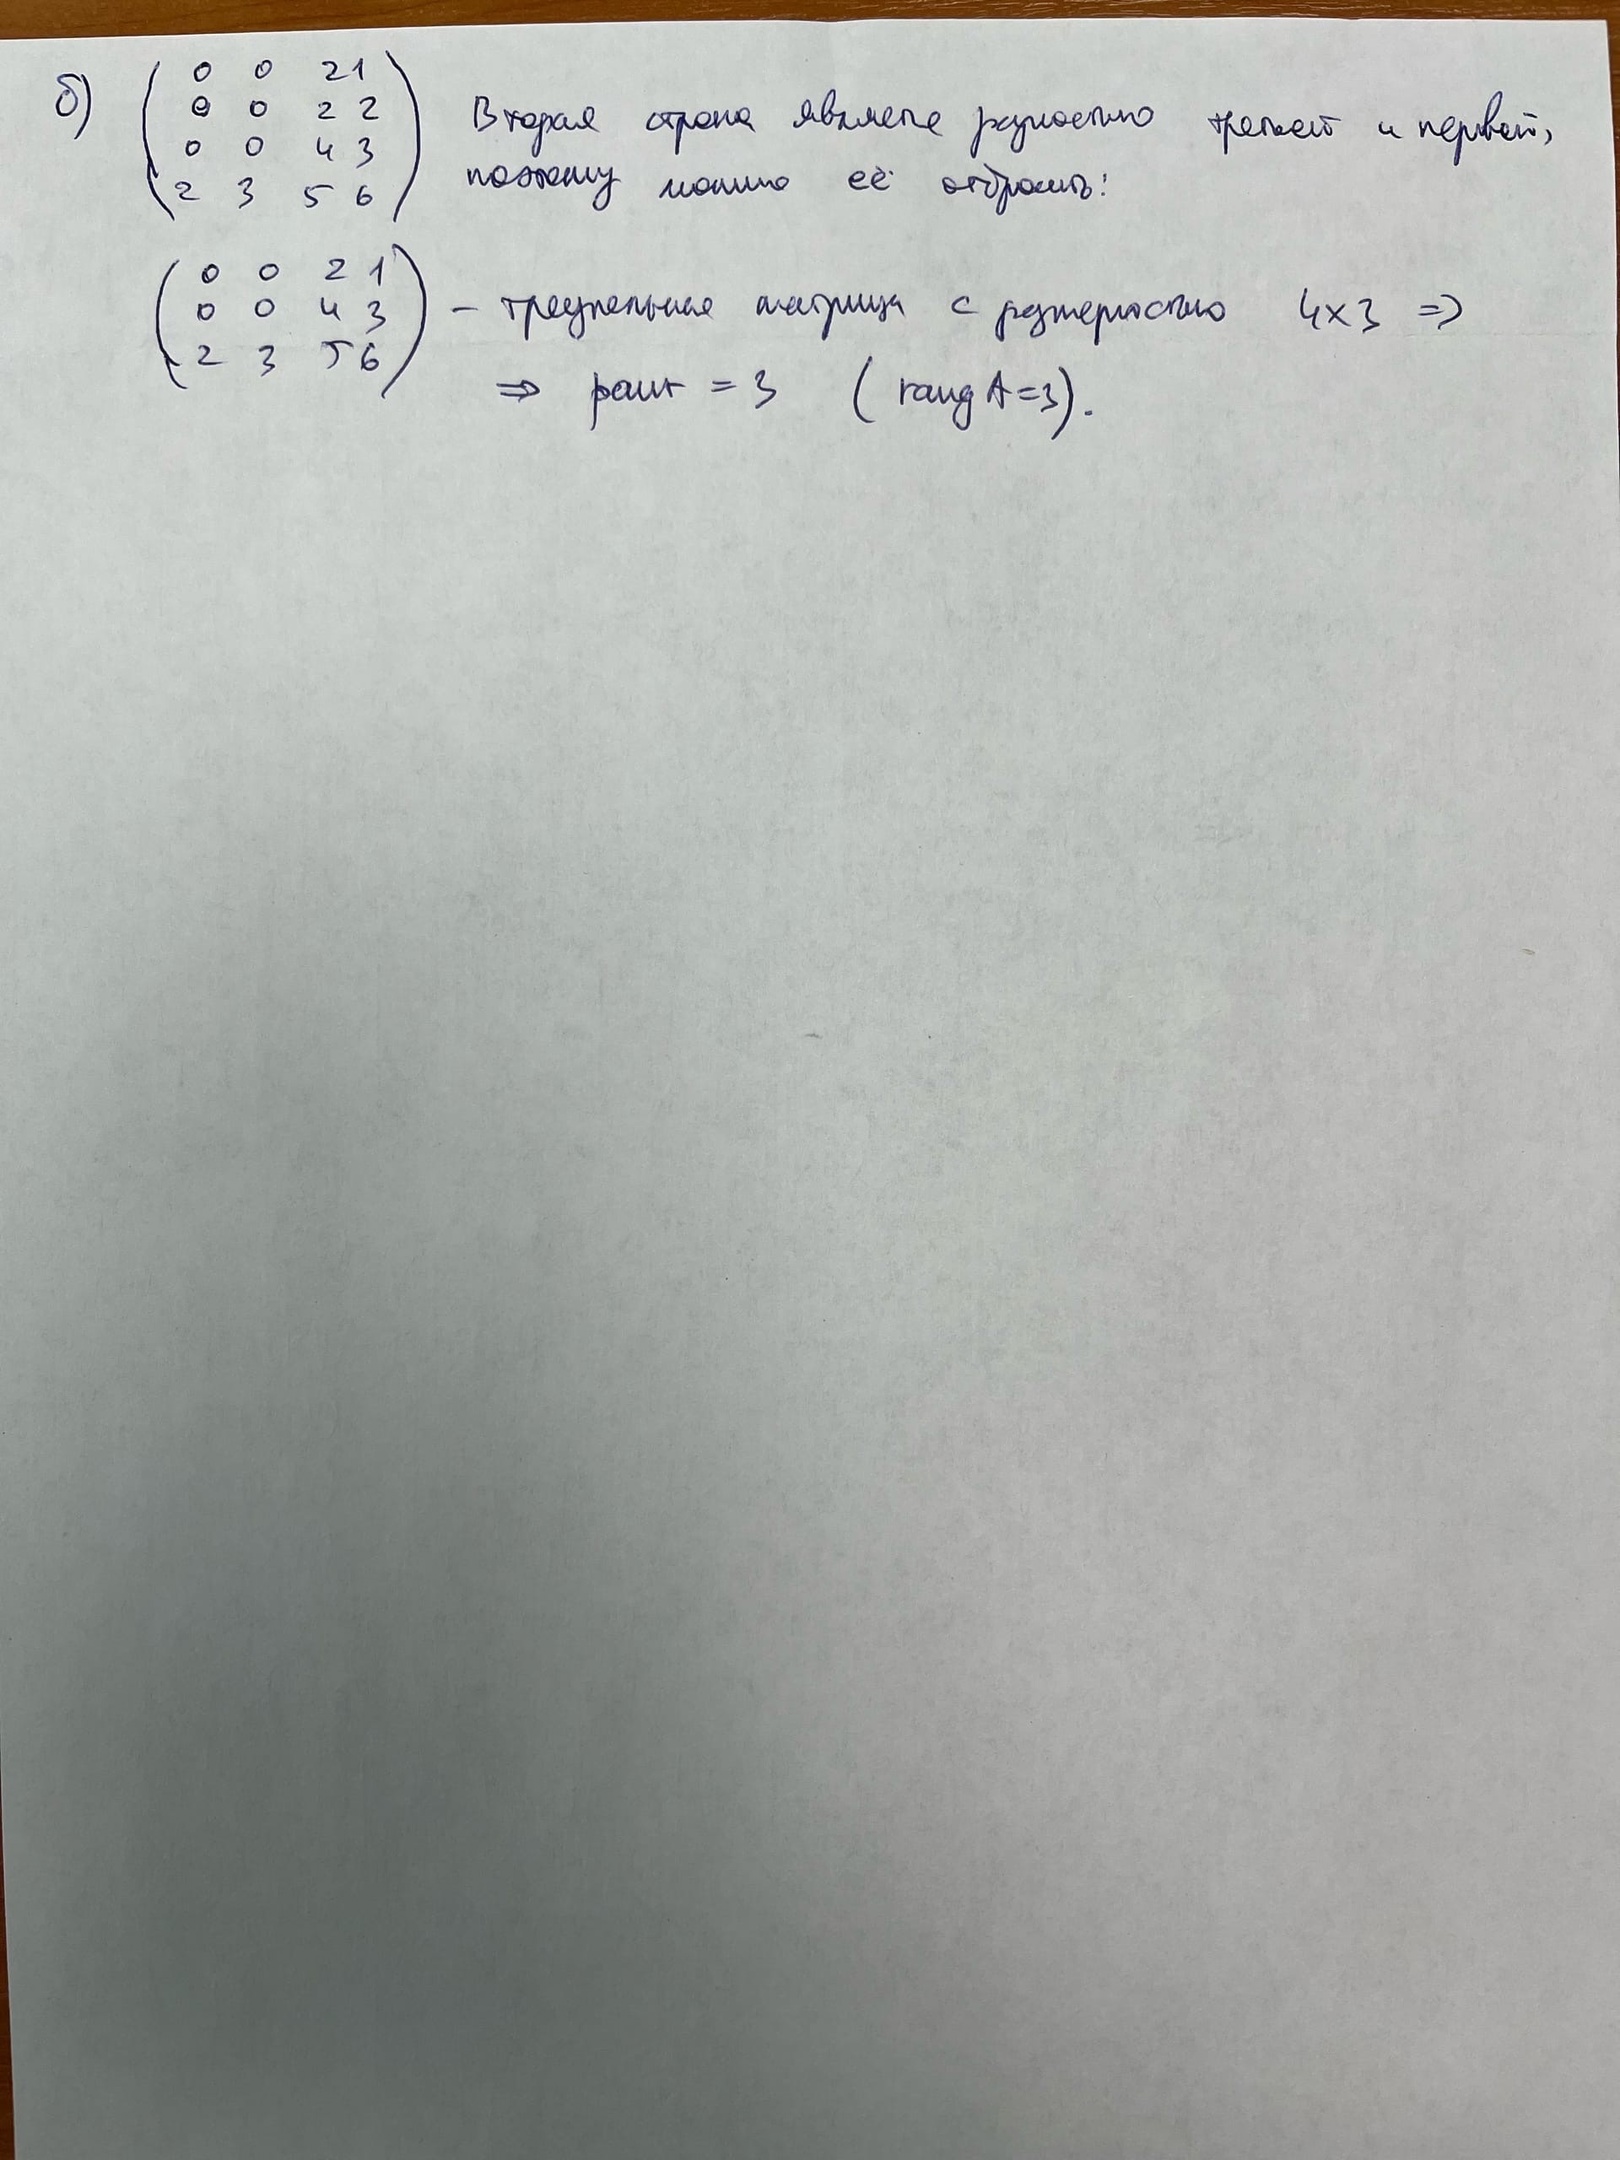 б) ( 0 0 2 1
0 0 2 2
0 0 4 3
2 3 5 6 ) Вторая строка является разностью третьей и первой,
поэтому можно её отбросить:
( 0 0 2 1
0 0 4 3
2 3 5 6 ) – треугольная матрица с размерностью 4×3 =>
=> ранг = 3 ( rang A = 3 ).